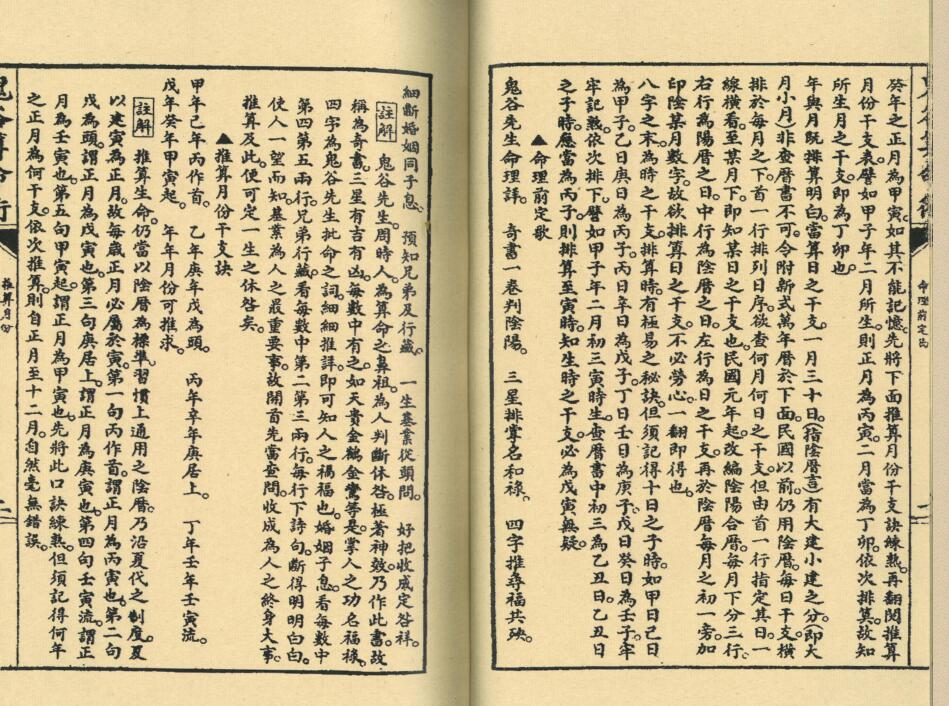 癸年之正月為甲寅。如其不能記憶。先將下面推算月份干支訣練熟。再翻閱推算
月份干支表。譬如甲子年二月所生。則正月為丙寅。二月當為丁卯。依次排算。故知
所生月之干支。即為丁卯也。
年與月既排算明白。當算日之干支。一月三十日。(指陰曆言)有大建小建之分。(即大
月小月)非查曆書不可。今附新式萬年曆於下面。民國以前。仍用陰曆。每日干支。橫
排於每月之下。首一行排列日序。欲查何月何日之干支。但由首一行指定其日。一
線橫看。至某月下。即知某日之干支也。民國元年起。改編陰陽合曆。每月下分三行。
右行為陽曆之日。中行為陰曆之日。左行為日之干支。再於陰曆每月之初一旁。加
印陰某月數字。故欲排算日之干支。不必勞心。一翻即得也。
八字之末。為時之干支。排算時。有極易之秘訣。但須記得十日之子時。如甲日己日
為甲子。乙日庚日為丙子。丙日辛日為戊子。丁日壬日為庚子。戊日癸日為壬子。牢
牢記熟。依次排下。譬如甲子年二月初三寅時生。查曆書中初三為乙丑日。乙丑日
之子時。應當為丙子。則排算至寅時。知生時之干支。必為戊寅無疑。
▲命理前定歌
鬼谷先生命理詳。 奇書一卷判陰陽。 三星排掌名和祿。 四字推尋福共殃。
細斷婚姻同子息。 預知兄弟及行藏。 一生基業從頭問。 好把收成定咎祥。
註解 鬼谷先生。周時人。為算命之鼻祖。為人判斷休咎。極著神效。乃作此書。故
稱為奇書。三星有吉有凶。每數中有之。如天貴金鶴金鸞等是。掌人之功名福祿。
四字為鬼谷先生批命之詞。細細推詳。即可知人之禍福也。婚姻子息。看每數中
第四第五兩行。兄弟行藏。看每數中第二第三兩行。每行下詩句。斷得明明白白。
使人一望而知。基業為人之最重要事。故開首先當查問。收成為人之終身大事。
推算及此。便可定一生之休咎矣。
▲推算月份干支訣
甲年己年丙作首。 乙年庚年戊為頭。 丙年辛年庚居上。 丁年壬年壬寅流。
戊年癸年甲寅起。 年年月份可推求。
註解 推算生命。仍當以陰曆為標準。習慣上通用之陰曆。乃沿夏代之制度。夏
以建寅為正月。故每歲正月必屬於寅。第一句丙作首。謂正月為丙寅也。第二句
戊為頭。謂正月為戊寅也。第三句庚居上。謂正月為庚寅也。第四句壬寅流。謂正
月為壬寅也。第五句甲寅起。謂正月為甲寅也。先將此口訣練熟。但須記得何年
之正月為何干支。依次推算。則自正月至十二月。自然毫無錯誤。
推算月份
二